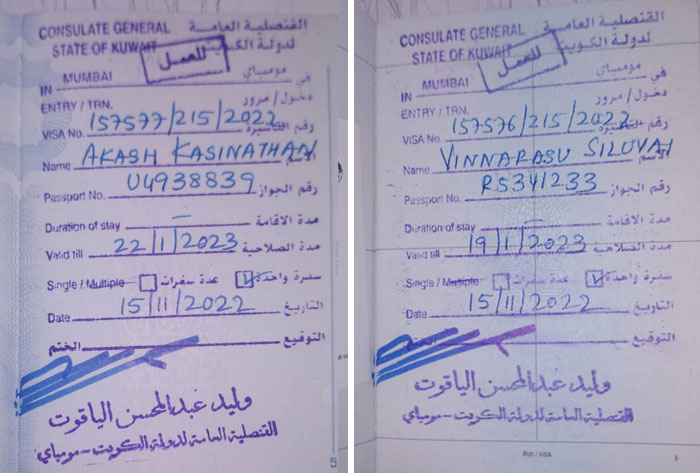 CONSULATE GENERAL القنصلية العامة
STATE OF KUWAIT لدولة الكويت
للعمل
IN MUMBAI مومباي في
ENTRY / TRN. دخول / مرور
VISA No. 157577/215/2022 رقم التأشيرة
Name AKASH KASINATHAN الاسم
Passport No. U4938839 رقم الجواز
Duration of stay — مدة الاقامة
Valid till 22/1/2023 مدة الصلاحية
Single / Multiple عدة سفرات سفرة واحدة
Date 15/11/2022 التاريخ
الختم التوقيع
وليد عبدالمحسن الياقوت
القنصلية العامة لدولة الكويت - مومباي
5
CONSULATE GENERAL القنصلية العامة
STATE OF KUWAIT لدولة الكويت
للعمل
IN MUMBAI مومباي في
ENTRY / TRN. دخول / مرور
VISA No. 157576/215/2022 رقم التأشيرة
Name VINNARASU SILUVAI الاسم
Passport No. R5341233 رقم الجواز
Duration of stay — مدة الاقامة
Valid till 19/1/2023 مدة الصلاحية
Single / Multiple عدة سفرات سفرة واحدة
Date 15/11/2022 التاريخ
الختم التوقيع
وليد عبدالمحسن الياقوت
القنصلية العامة لدولة الكويت - مومباي
/ VISA 5